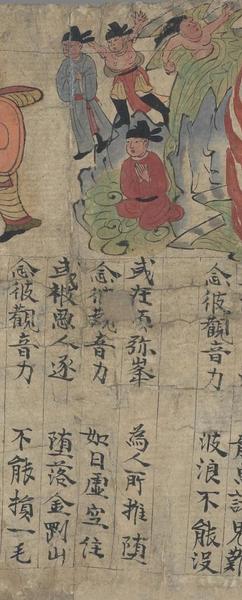 鬼難
念彼觀音力 波浪不能沒
或在須弥峯 為人所推墮
念彼觀音力 如日虛空住
或被惡人逐 墮落金剛山
念彼觀音力 不能損一毛